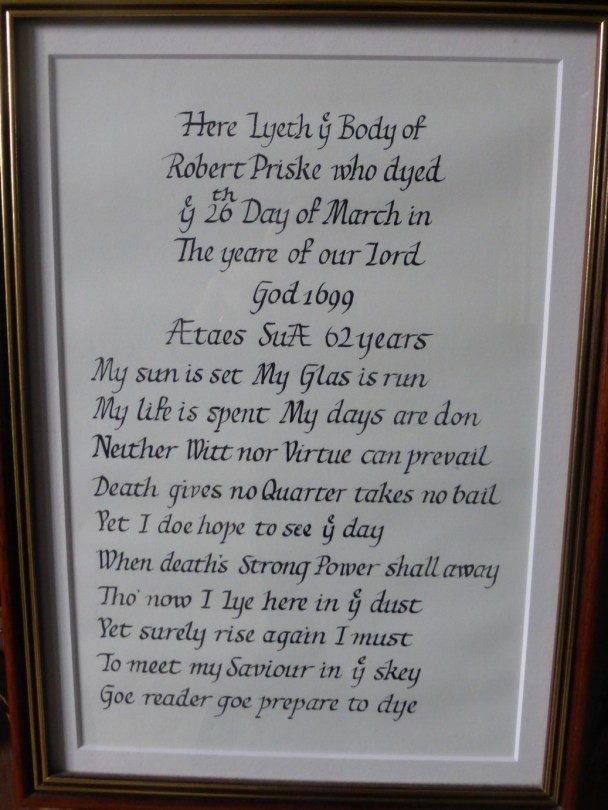 Here Lyeth yͤ Body of
Robert Priske who dyed
yͤ 26th Day of March in
The yeare of our Lord
God 1699
Ætaes SuÆ 62 years
My sun is set My Glas is run
My life is spent My days are don
Neither Witt nor Virtue can prevail
Death gives no Quarter takes no bail
Yet I doe hope to see yͤ day
When death's Strong Power shall away
Tho' now I lye here in yͤ dust
Yet surely rise again I must
To meet my Saviour in yͤ skey
Goe reader goe prepare to dye